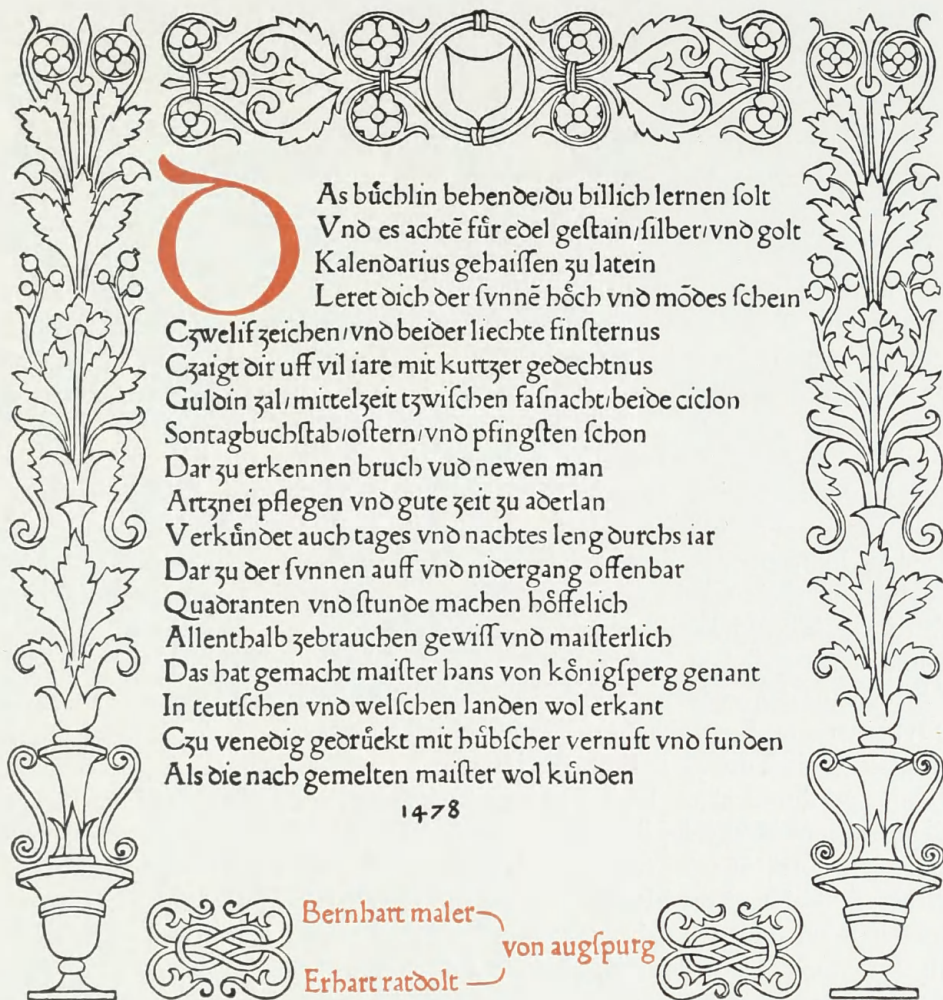 DAs buͤchlin behende/du billich lernen ſolt
Vnd es achtē fuͤr edel geſtain/ſilber/vnd golt
Kalendarius gehaiſſen zu latein
Leret dich der ſvnnē hoͤch vnd mōdes ſchein
Czwelif zeichen/vnd beider liechte finſternus
Czaigt dir uff vil iare mit kurtzer gedechtnus
Guldin zal/mittelzeit tzwiſchen faſnacht/beide ciclon
Sontagbuchſtab/oſtern/vnd pfingſten ſchon
Dar zu erkennen bruch vud newen man
Artznei pflegen vnd gute zeit zu aderlan
Verkuͤndet auch tages vnd nachtes leng durchs iar
Dar zu der ſvnnen auff vnd nidergang offenbar
Quadranten vnd ſtunde machen hoͤffelich
Allenthalb zebrauchen gewiſſ vnd maiſterlich
Das hat gemacht maiſter hans von koͤnigſperg genant
In teutſchen vnd welſchen landen wol erkant
Czu venedig gedruͤckt mit huͤbſcher vernuft vnd funden
Als die nach gemelten maiſter wol kuͤnden
1478
Bernhart maler
von augſpurg
Erhart ratdolt